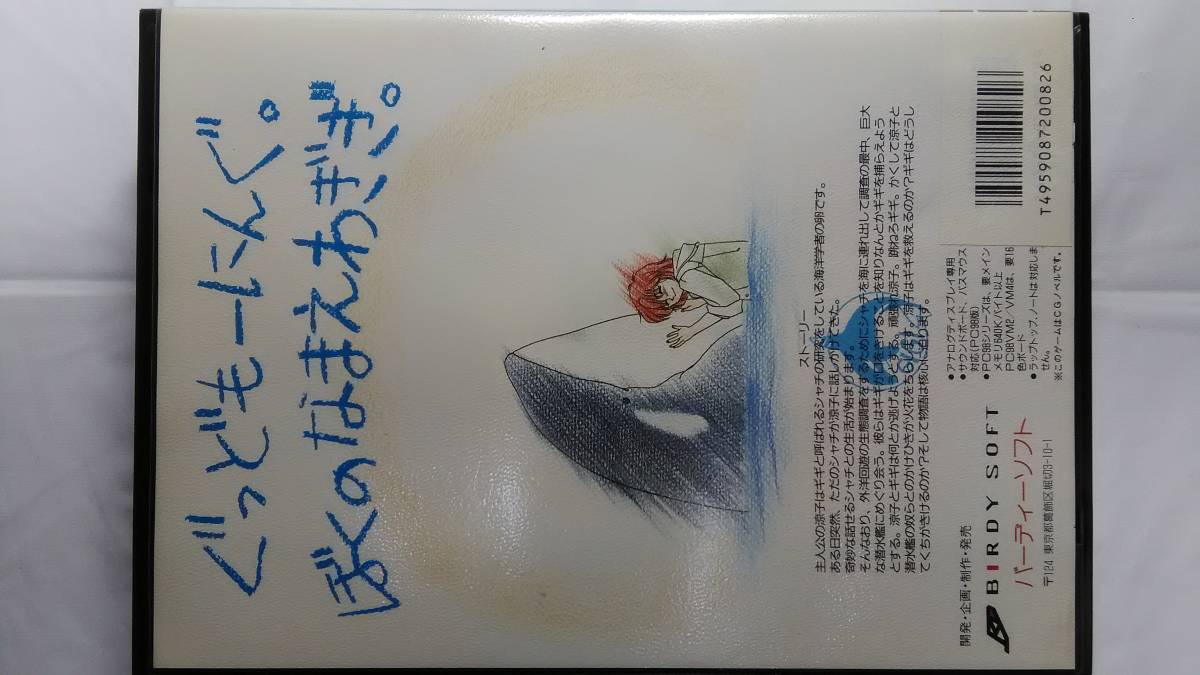 ぐっどもーにんぐ。
ぼくのなまえわギギ。
ストーリー
主人公の涼子はギギと呼ばれるシャチの研究をしている海洋学者の卵です。
ある日突然、ただのシャチが涼子に話しかけてきた。
奇妙な話せるシャチとの生活が始まります。
そんなおり、外洋回遊の生態調査をするためにシャチを海に連れ出して調査の最中、巨大
な潜水艦にめぐり会う。彼らはギギが口をきけることを知りなんとかギギを捕らえよう
とする。涼子とギギは何とか逃げようとする。頑張れ涼子。跳ねろギギ。かくして涼子と
潜水艦の奴らとのかけひきが火花をちらします。涼子はギギを救えるのか?ギギはどうし
てくちがきけるのか?そして物語は核心に迫ります。
開発・企画・制作・発売
BIRDY SOFT
バーディーソフト
〒124 東京都葛飾区堀切3-10-1
●アナログディスプレイ専用
●サウンドボード、バスマウス
対応(PC98版)
●PC98シリーズは、要メイン
メモリ640Kバイト以上
PC98VM2/VM4は、要16
色ボード
●ラップトップ、ノートは対応しま
せん。
※このゲームはCGノベルです。
T4959087200826